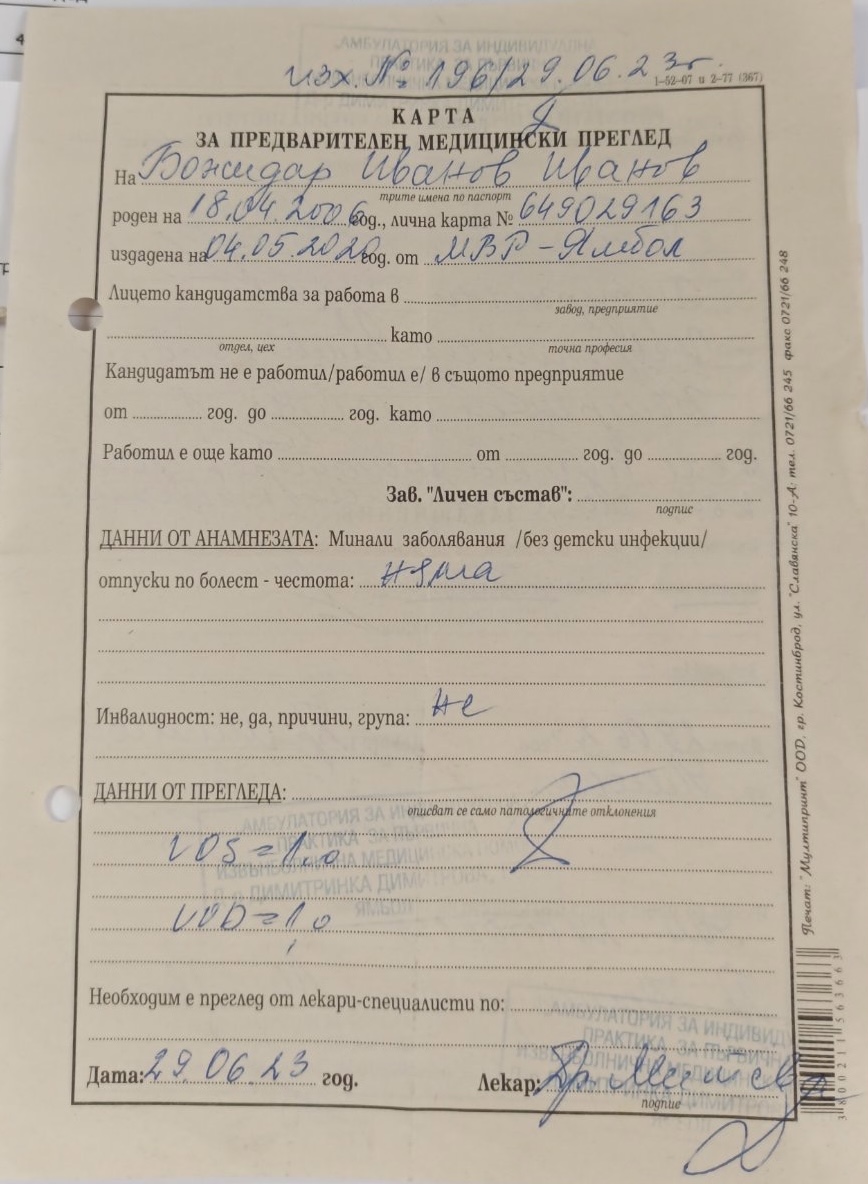 изх. № 196/29.06.23г.
1-52-07 и 2-77 (367)
КАРТА
ЗА ПРЕДВАРИТЕЛЕН МЕДИЦИНСКИ ПРЕГЛЕД
На Божидар Иванов Иванов
трите имена по паспорт
роден на 18.04.2006 год., лична карта № 649029163
издадена на 04.05.2020 год. от МВР - Ямбол
Лицето кандидатства за работа в
завод, предприятие
като
отдел, цех точна професия
Кандидатът не е работил/работил е/ в същото предприятие
от год. до год. като
Работил е още като от год. до год.
Зав. "Личен състав":
подпис
ДАННИ ОТ АНАМНЕЗАТА: Минали заболявания /без детски инфекции/
отпуски по болест - честота: няма
Инвалидност: не, да, причини, група: не
ДАННИ ОТ ПРЕГЛЕДА:
описват се само патологичните отклонения
АМБУЛАТОРИЯ ЗА
ПРАКТИКА ЗА ПЪРВИЧНА
VOS = 1.0
ИЗВЪНБОЛНИЧНА МЕДИЦИНСКА
Д-р ДИМИТРИНКА ДИМИТРОВА
ЯМБОЛ
VOD = 1,0
Необходим е преглед от лекари-специалисти по:
АМБУЛАТОРИЯ ЗА ИНДИВИД
ПРАКТИКА ЗА ПЪРВИЧН
Дата: 29.06.23 год. Лекар: Др.
подпис
Печат: "Мултипринт" ООД, гр. Костинброд, ул. "Славянска" 10-А; тел. 0721/66 245 факс 0721/66 248
3800211563663